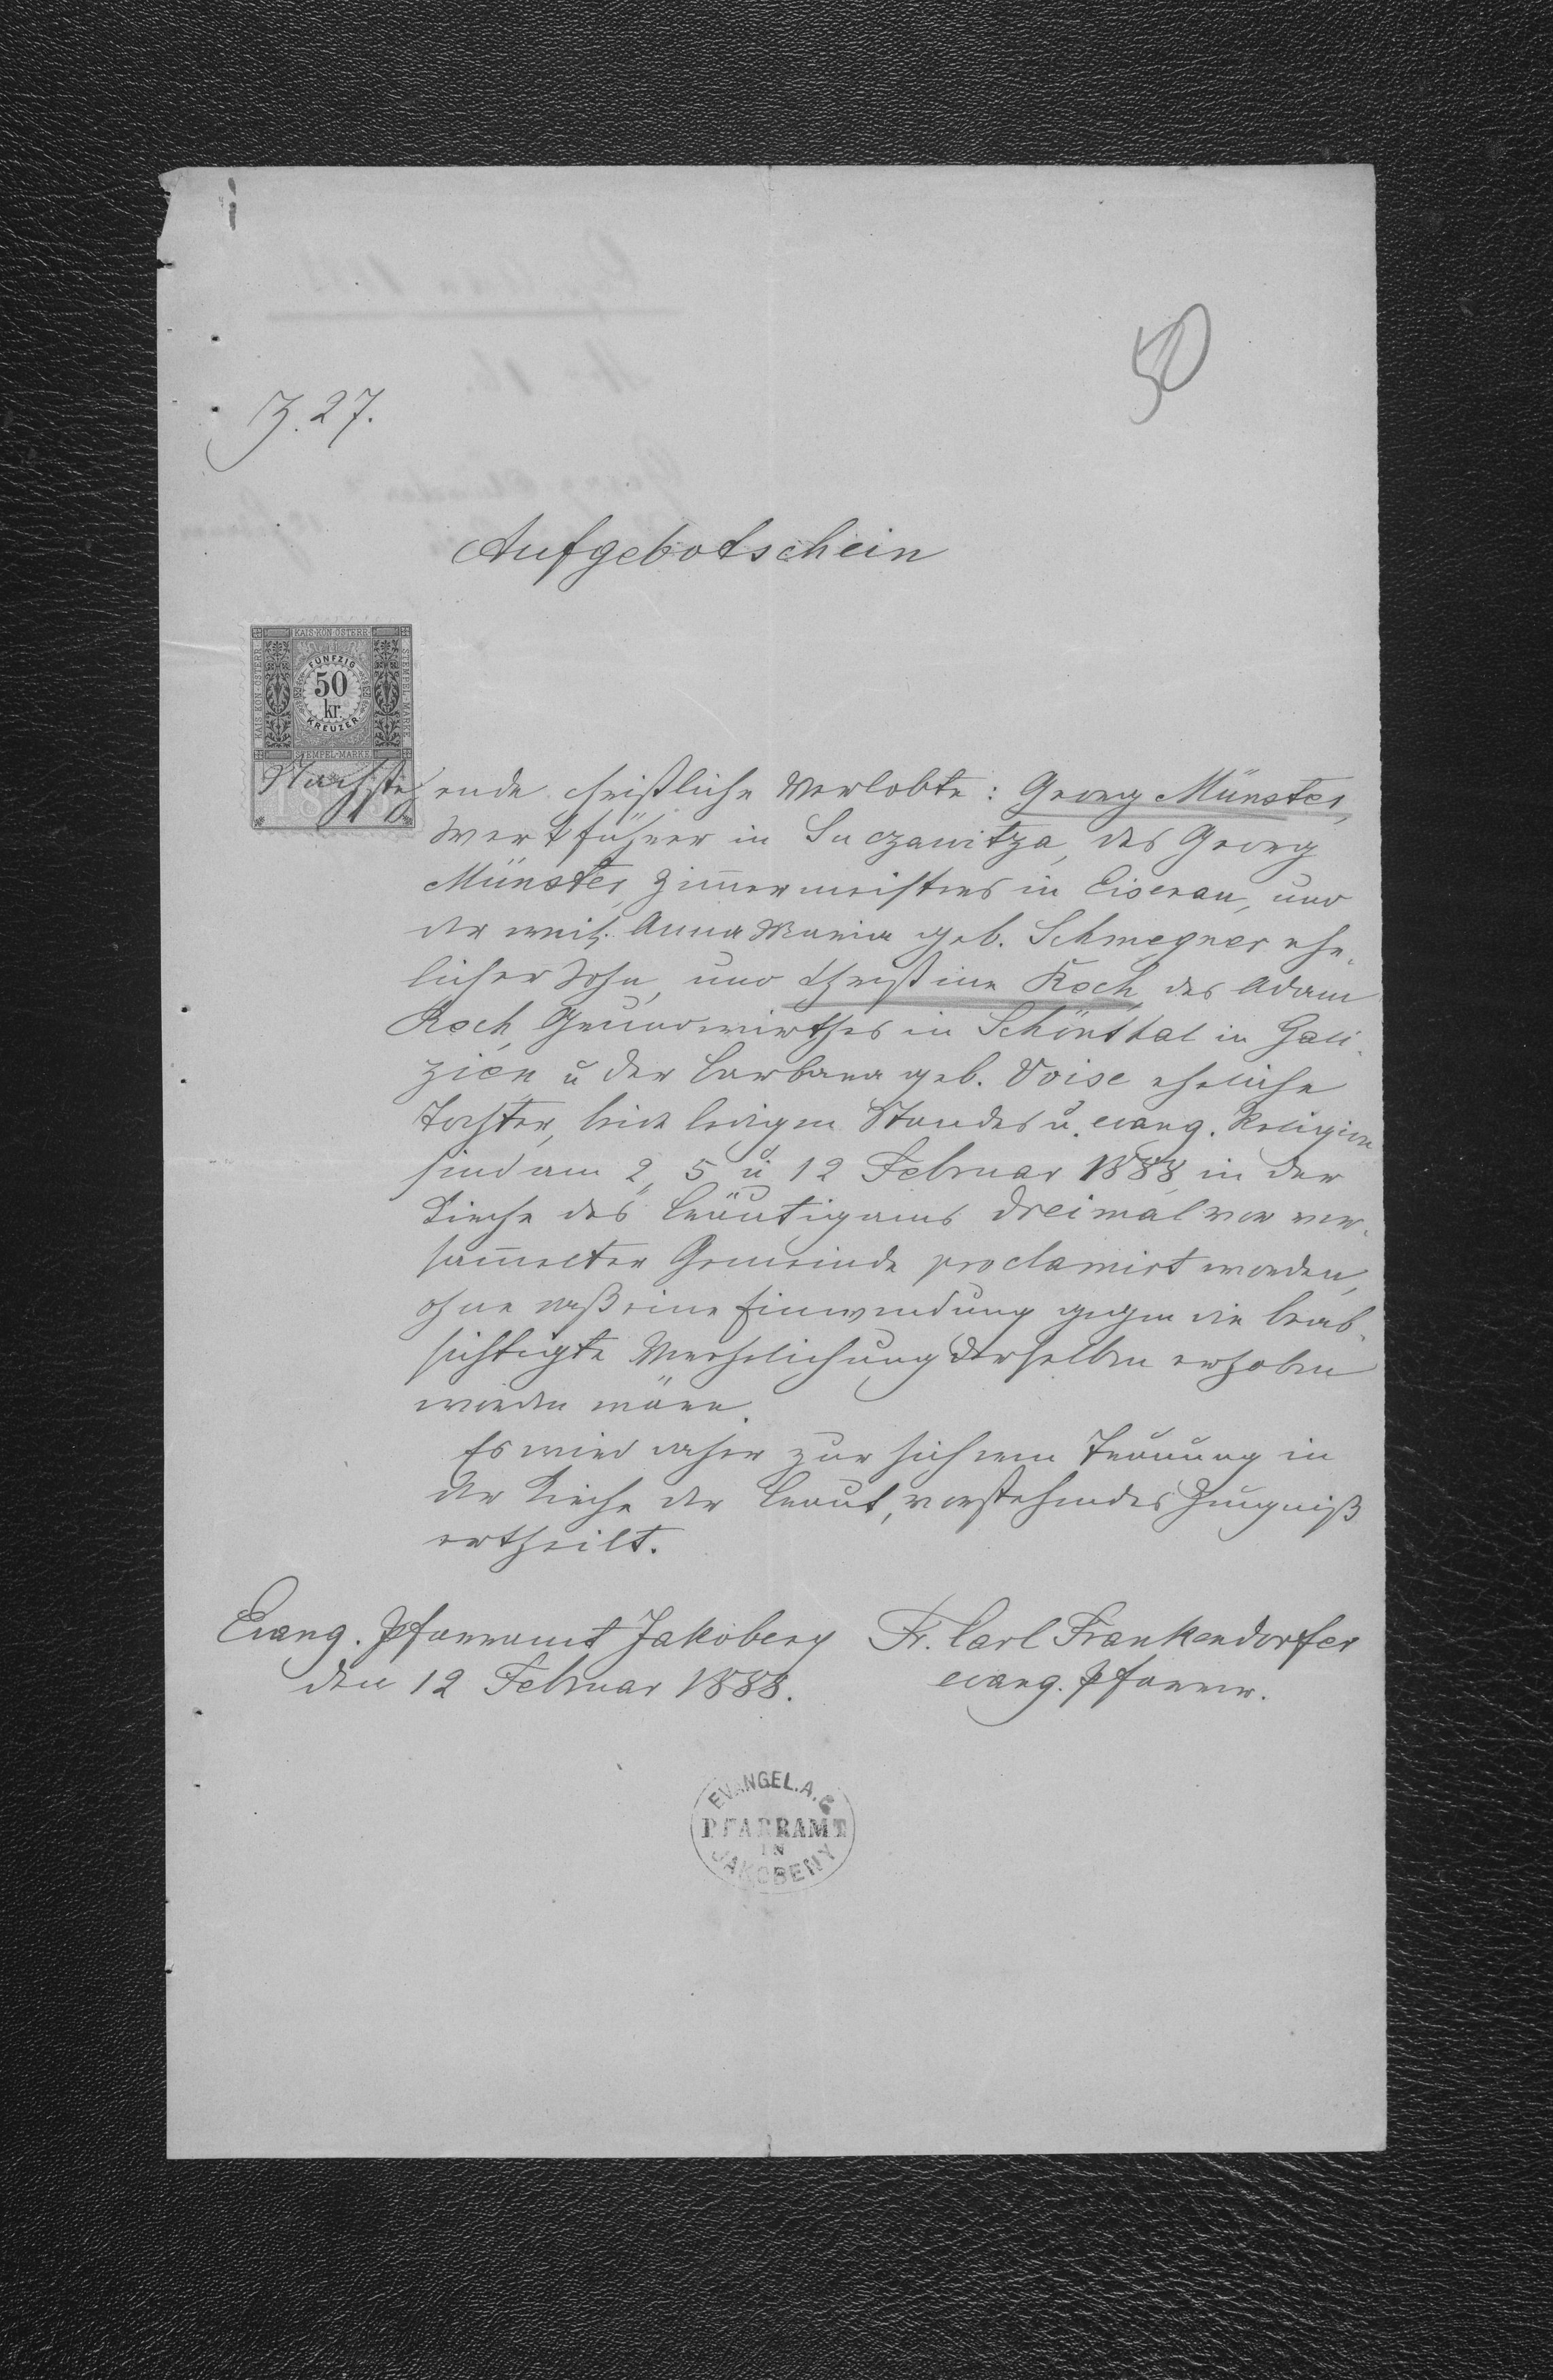 50
Z. 27.
Aufgebotschein
KAIS. KÖN. ÖSTERR.
KAIS. KÖN. ÖSTERR.
STEMPEL-MARKE
FÜNFZIG
50
kr.
KREUZER
STEMPEL-MARKE
Nachstehende christliche Verlobte: Georg Münster,
Werkführer in Suczawitza, des Georg
Münster, Zimmermeisters in Eisenau, und
der weil. Anna Maria geb. Schmegner ehe-
licher Sohn, und Christine Koch, des Adam
Koch, Grundwirthes in Schönthal in Gali-
zien u der Barbara geb. Voise eheliche
Tochter, beide ledigen Standes u. evang. Religion
sind am 2, 5 u 12 Februar 1888 in der
Kirche des Bräutigams dreimal vor ver-
sammelter Gemeinde proclamirt worden,
ohne daß eine Einwendung gegen die beab-
sichtigte Verehelichung derselben erhoben
worden wäre.
Es wird daher zur Trauung in
der Kirche der Braut, vorstehendes Zeugniß
ertheilt.
Evang. Pfarramt Jakobeny Fr. Carl Frankendorfer
den 12 Februar 1888. evang. Pfarrer.
EVANGEL. A. C.
PFARRAMT
IN
JAKOBENY